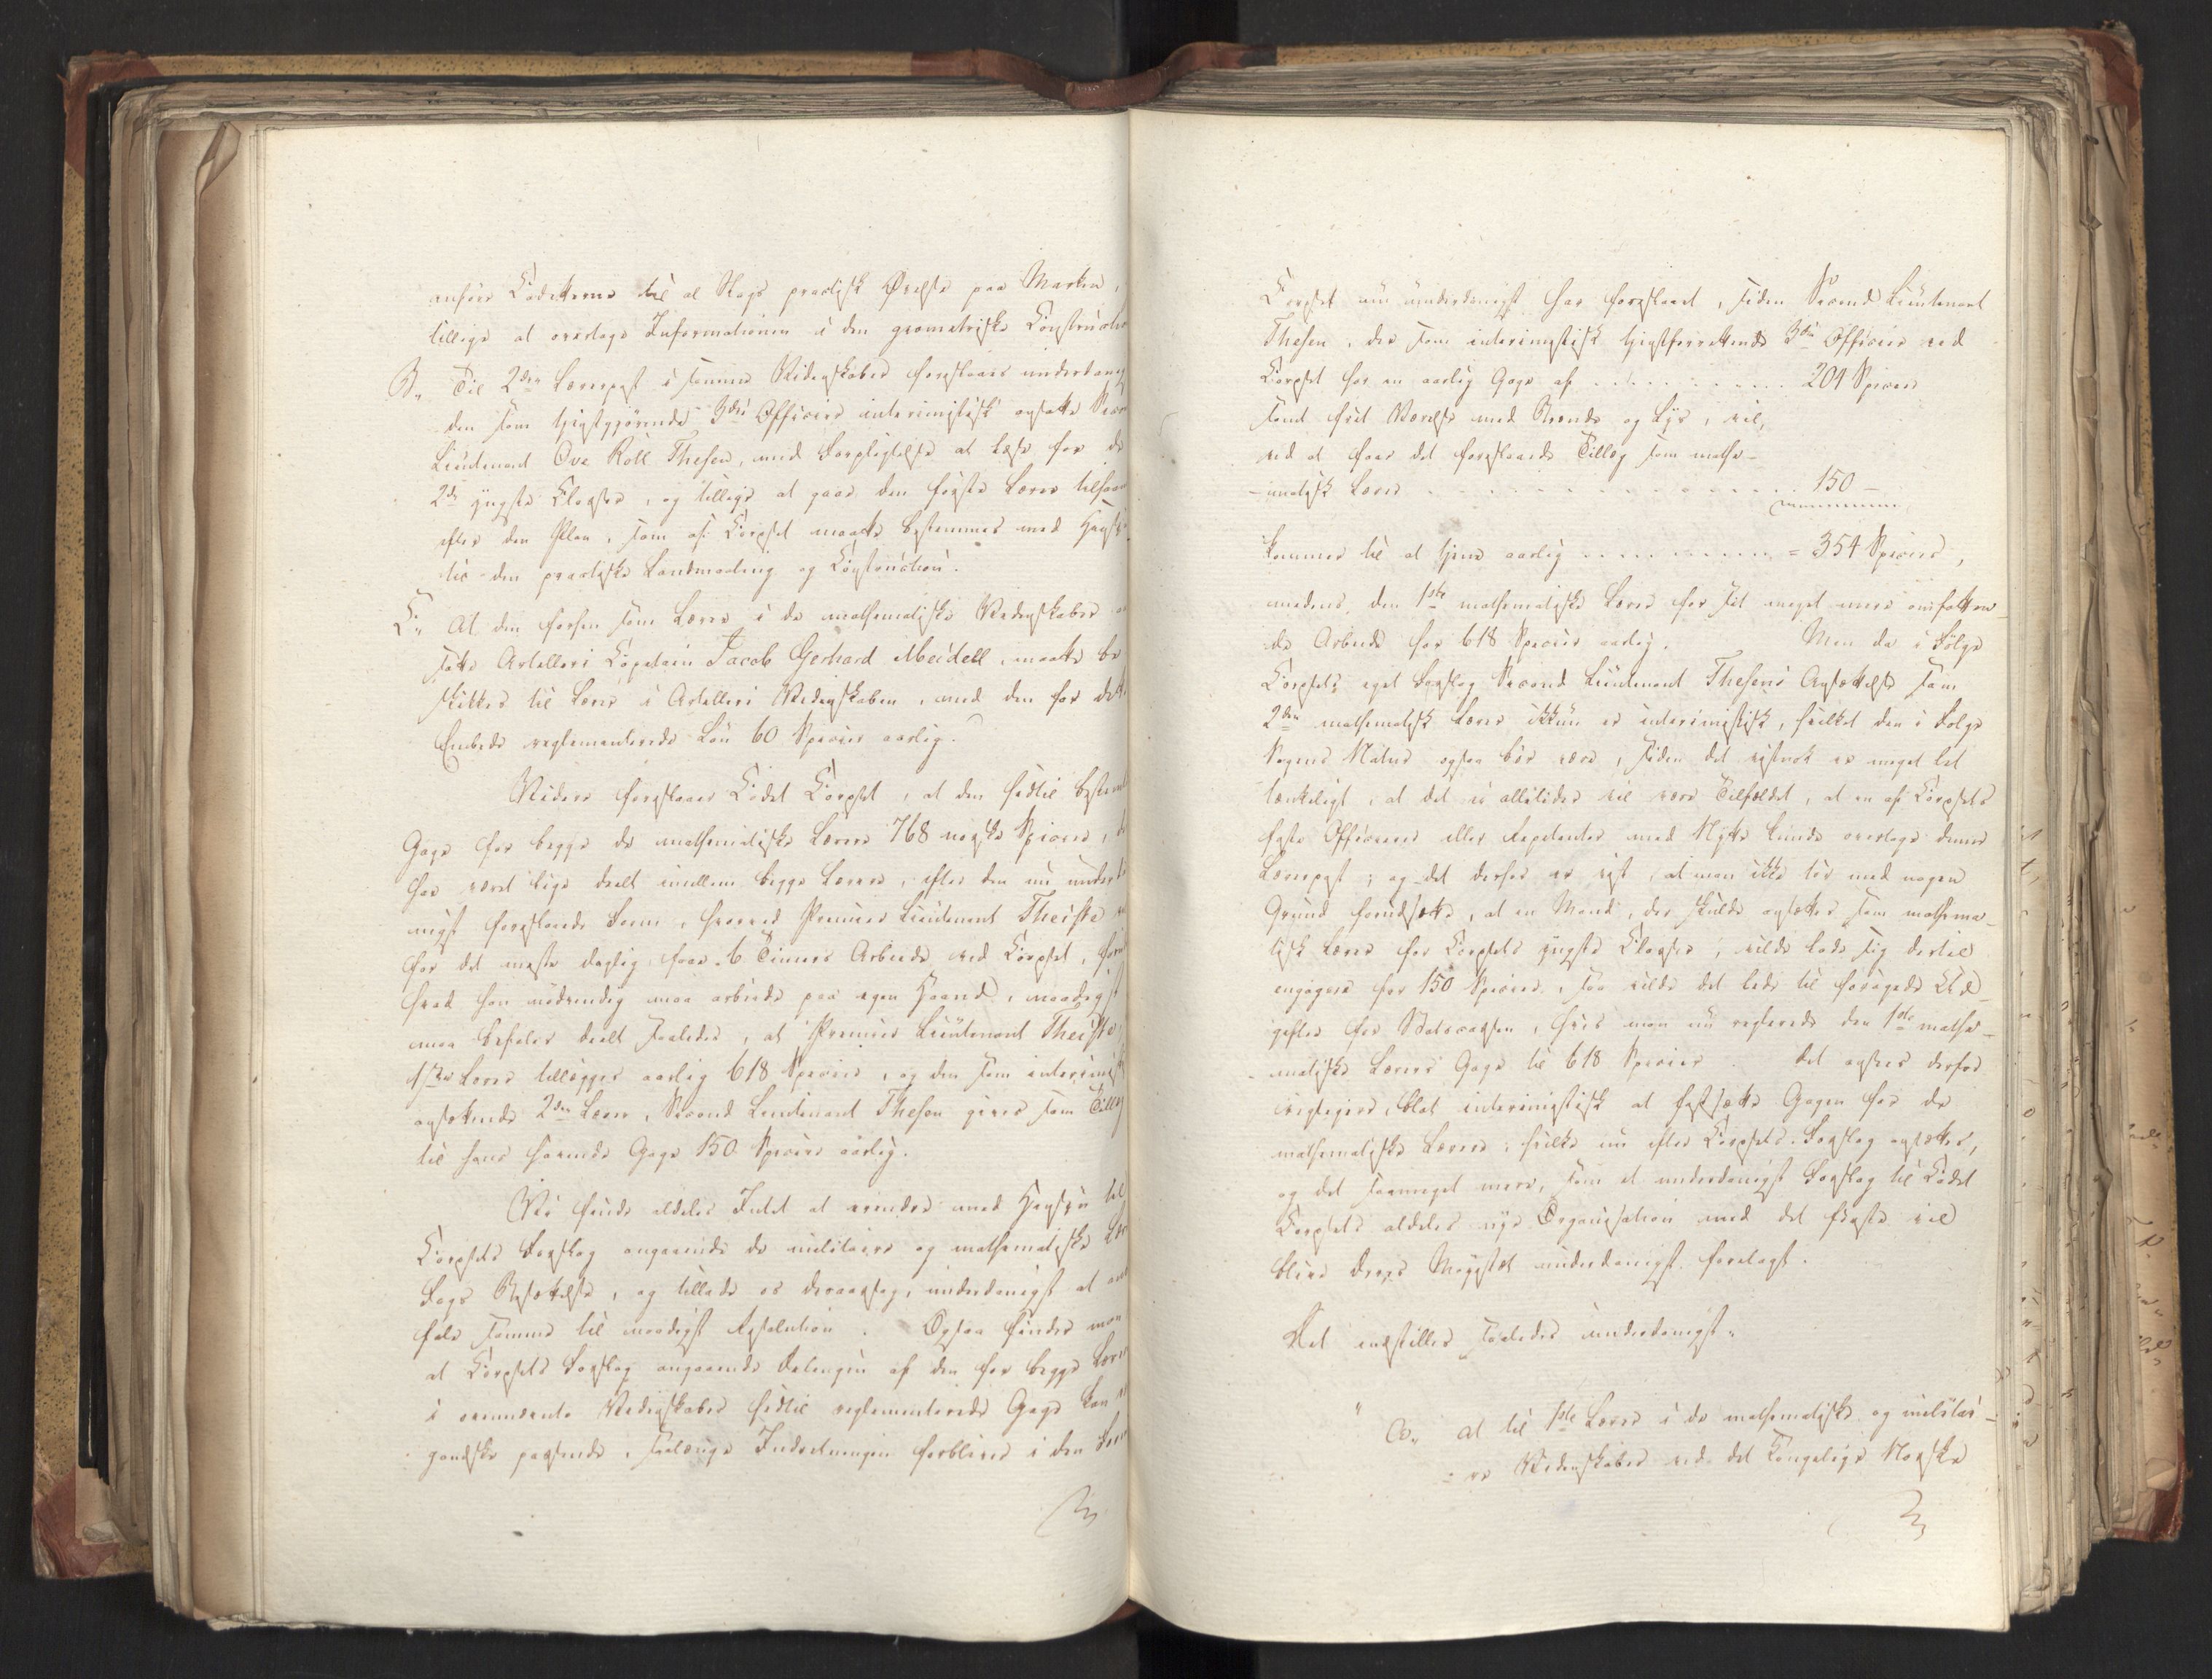 anføre Cadetterne til al Slags practisk Øvelse paa Marken,
tillige at overtage Informationen i den geometriske Constructio
B., Til 2den Lærerpost i samme Videnskaber foreslaaes underdanig
den som tjenstgjørende 3die Officeer interimistisk ansatte Secon
Lieutenant Ove Röll Thesen, med Forpligtelse at læse for de
2de yngste Classer, og tillige at gaae den første Lærer tilhaan
efter den Plan, som af Corpset maatte bestemmes med Hensyn
til den practiske Landmaaling og Construction.
C., At den forhen som Lærer i de mathematiske Videnskaber
satte Artilleri Capitain Jacob Gerhard Meidell, maatte be
skikkes til Lærer i Artilleri Videnskaben, med den for dette
Embede reglementerede Løn 60 Specier aarlig.
Videre foreslaaer Cadet Corpset, at den hidtil bestemt
Gage for begge de mathematiske Lærere 768 norske Specier, de
har været lige deelt imellem begge Lærere, efter den nu underd
nigst foreslaaede Form, hvorved Premier Lieutenant Theiste
for det meste daglig faaer 6 Timers Arbeide ved Corpset, foru
hvad han nødvendig maa arbeide paa egen Haand, naadigst
maa befales deelt saaledes, at Premier Lieutenant Theiste,
1ste Lærer tillægges aarlig 618 Specier, og den som interimist
ansættende 2den Lærer, Second Lieutenant Thesen gives som Tillæg
til hans havende Gage 150 Specier aarlig.
Vi finde aldeles Intet at erindre med Hensyn til
Corpsets Forslag angaaende de militaire og mathematiske Lær
Fags Besættelse, og tillade os desaarsag, underdanigst at anbe
fale samme til naadigst Resolution. Ogsaa finder man
at Corpsets Forslag angaaende Delingen af den for begge Lærer
i ovennævnte Videnskaber hidtil reglementerede Gage kan
gandske passende, saalænge Indretningen forbliver i den Form
Corpset nu underdanigst har foreslaaet, siden Second Lieutenant
Thesen, der som interimistisk tjenstforrettende 3die Officeer ved
Corpset har en aarlig Gage af . . . . . . . . . . . 204 Specier
samt frit Værelse med Brænde og Lys, vil,
ved at faae det foreslaaede Tillæg som mathe-
-matisk Lærer . . . . . . . . . . . . . . . 150 –
kommer til at tjene aarlig . . . . . . . . . . = 354 Specier,
medens den 1ste mathematiske Lærer for sit meget mere omfatten-
de Arbeide har 618 Specier aarlig. Men da i Følge
Corpsets eget Forslag Second Lieutenant Thesens Ansættelse som
2den mathematisk Lærer ikkun er interimistisk, hvilket den i Følge
Sagens Natur ogsaa bør være, siden det vistnok er meget let
tænkeligt, at det ei alletider vil være Tilfældet, at en af Corpsets
faste Officerer eller Repetenter med Nytte kunde overtage denne
Lærerpost; og det derhos er vist, at man ikke tør med nogen
Grund forudsætte, at en Mand, der skulde ansættes som mathema-
tisk Lærer for Corpsets yngste Classer, vilde lade sig dertil
engagere for 150 Specier, saa vilde det lede til forøgede Ud-
gifter for Statscassen, hvis man nu regulerede den 1ste mathe-
-matiske Lærers Gage til 618 Specier. Det ansees derfor
rigtigere, blot interimistisk at fastsætte Gagen for de
mathematiske Lærere, hvilke nu efter Corpsets Forslag ansættes,
og det saameget mere, som et underdanigst Forslag til Cadet
Corpsets aldeles nye Organisation med det første vil
blive Deres Majestæt underdanigst forelagt.
Det indstilles saaledes underdanigst:
" A., at til 1ste Lærer i de mathematiske og militai-
= re Videnskaber ved det Kongelige Norske